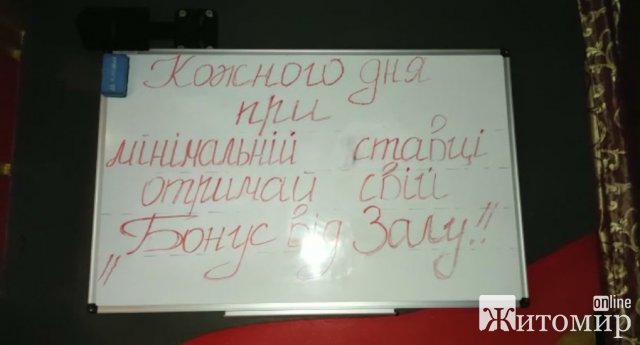 Кожного дня
при
мінімальній ставці
отримай свій
„Бонус від Залу!!
Житомир online